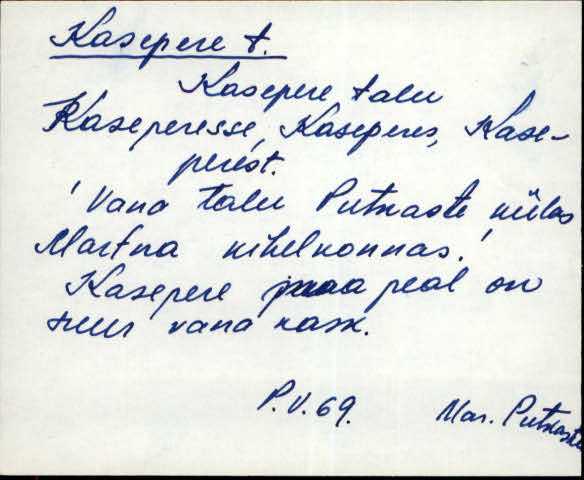 Kasepere t.
Kasepere talu
Kaseperesse, Kaseperes, Kase-
perest.
'Vana talu Putkaste külas
Martna kihelkonnas.'
Kasepere maa peal on
suur vana kask.
P.V.69. Mar. Putkaste